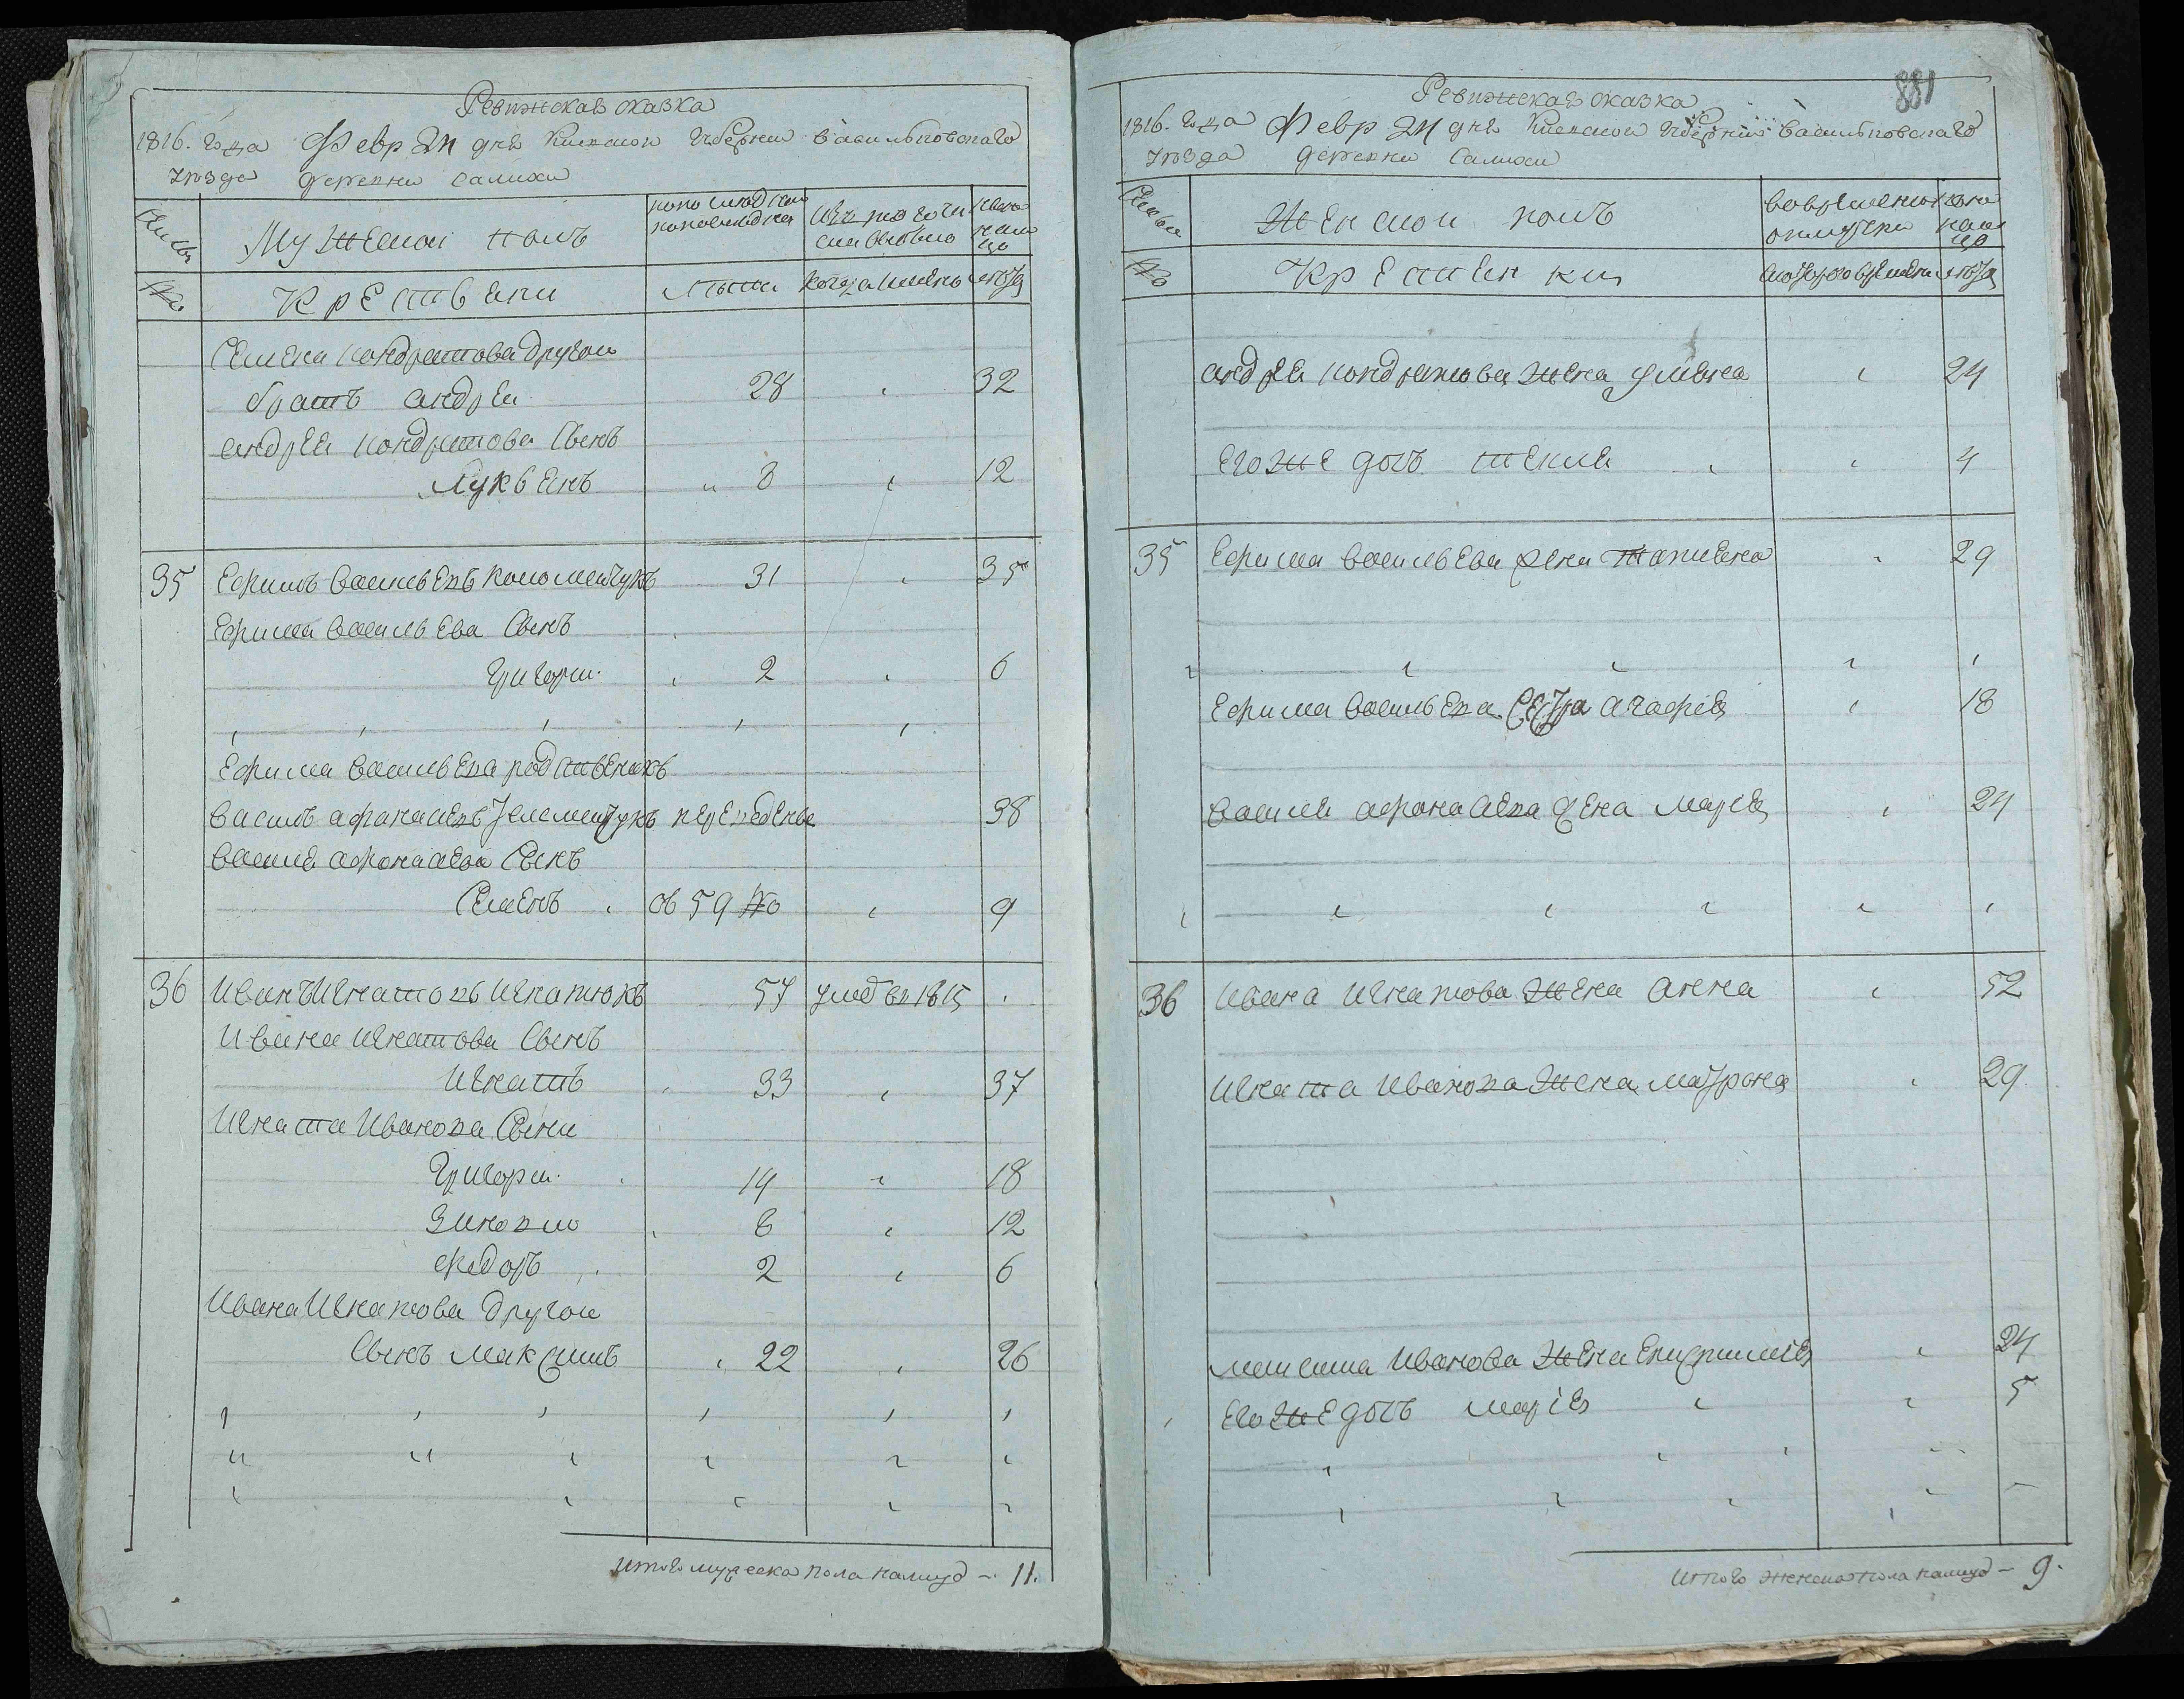 Ревижская сказка
1816. года Февр 24 дня Киевской губернии Васильковского
уезда деревни Салихи
Мужеской полъ
Крестьяни
лета
Семена Кондратова другой
братъ андрей 28 32
андрея кондратова сынъ
Лукьянъ 8 12
35 Ефимъ васильевъ коломейчукъ 31 35
Ефима васильева сынъ
григори 2 6
Ефима васильева родственикъ
василь афанасьевъ переведенъ 38
василя афанасева сынъ
Семенъ съ 59 № 9
36 Иванъ Игнатовъ Игнатюкъ 57 умре въ 1815
Ивана Игнатова сынъ
Игнатъ 33 37
Игната Иванова сыни
григори 14 18
Зинови 8 12
Федоръ 2 6
Ивана Игнатова другой
сынъ максимъ 22 26
Итого мужеска пола налицо – 11.
881
Ревижская сказка
1816. года Февр 24 дня Киевской губернии Васильковского
уезда деревни Салихи
Женской полъ
Крестьянки
андрея кондратова жена улияна 24
его же дочъ текля 4
35 Ефима васильева жена татияна 29
Ефима васильева сестра агафия 18
василя афанасева жена марія 24
36 Ивана Игнатова жена анна 52
Игната Иванова жена матрона 29
максима Иванова жена Ефимія 24
его же дочъ марія 5
Итого женска пола налицо – 9.